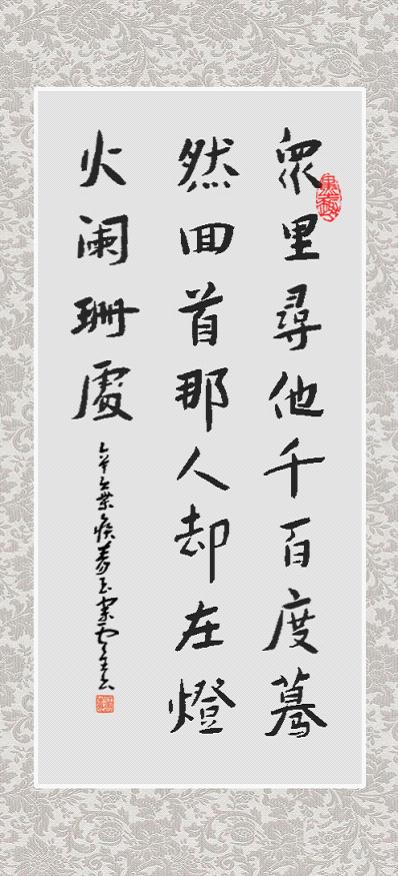 眾里尋他千百度驀
然回首那人却在燈
火阑珊處